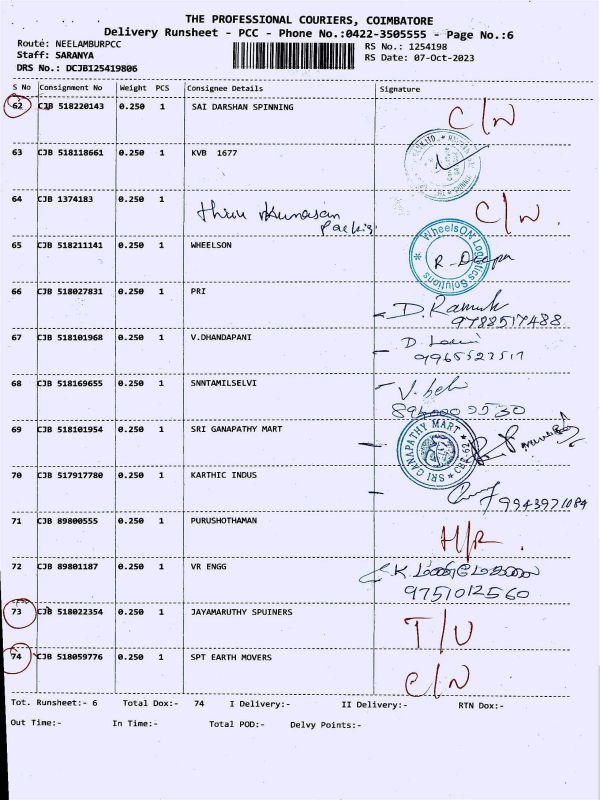 THE PROFESSIONAL COURIERS, COIMBATORE
Delivery Runsheet - PCC - Phone No.:0422-3505555 - Page No.:6
Route: NEELAMBURPCC RS No.: 1254198
Staff: SARANYA RS Date: 07-Oct-2023
DRS No.: DCJB125419806
S No Consignment No Weight PCS Consignee Details Signature
62 CJB 518220143 0.250 1 SAI DARSHAN SPINNING C/N
63 CJB 518118661 0.250 1 KVB 1677
64 CJB 1374183 0.250 1 C/N.
65 CJB 518211141 0.250 1 WHEELSON WheelsON Logistics Solutions R-Deepa
66 CJB 518027831 0.250 1 PRI D.
9788517488
67 CJB 518101968 0.250 1 V.DHANDAPANI D.
68 CJB 518169655 0.250 1 SNNTAMILSELVI
69 CJB 518101954 0.250 1 SRI GANAPATHY MART SRI GANAPATHY MART
70 CJB 517917780 0.250 1 KARTHIC INDUS
9943971084
71 CJB 89800555 0.250 1 PURUSHOTHAMAN H/R.
72 CJB 89801187 0.250 1 VR ENGG K.
9751012560
73 CJB 518022354 0.250 1 JAYAMARUTHY SPUINERS T/U
74 CJB 518059776 0.250 1 SPT EARTH MOVERS C/N
Tot. Runsheet:- 6 Total Dox:- 74 I Delivery:- II Delivery:- RTN Dox:-
Out Time:- In Time:- Total POD:- Delvy Points:-